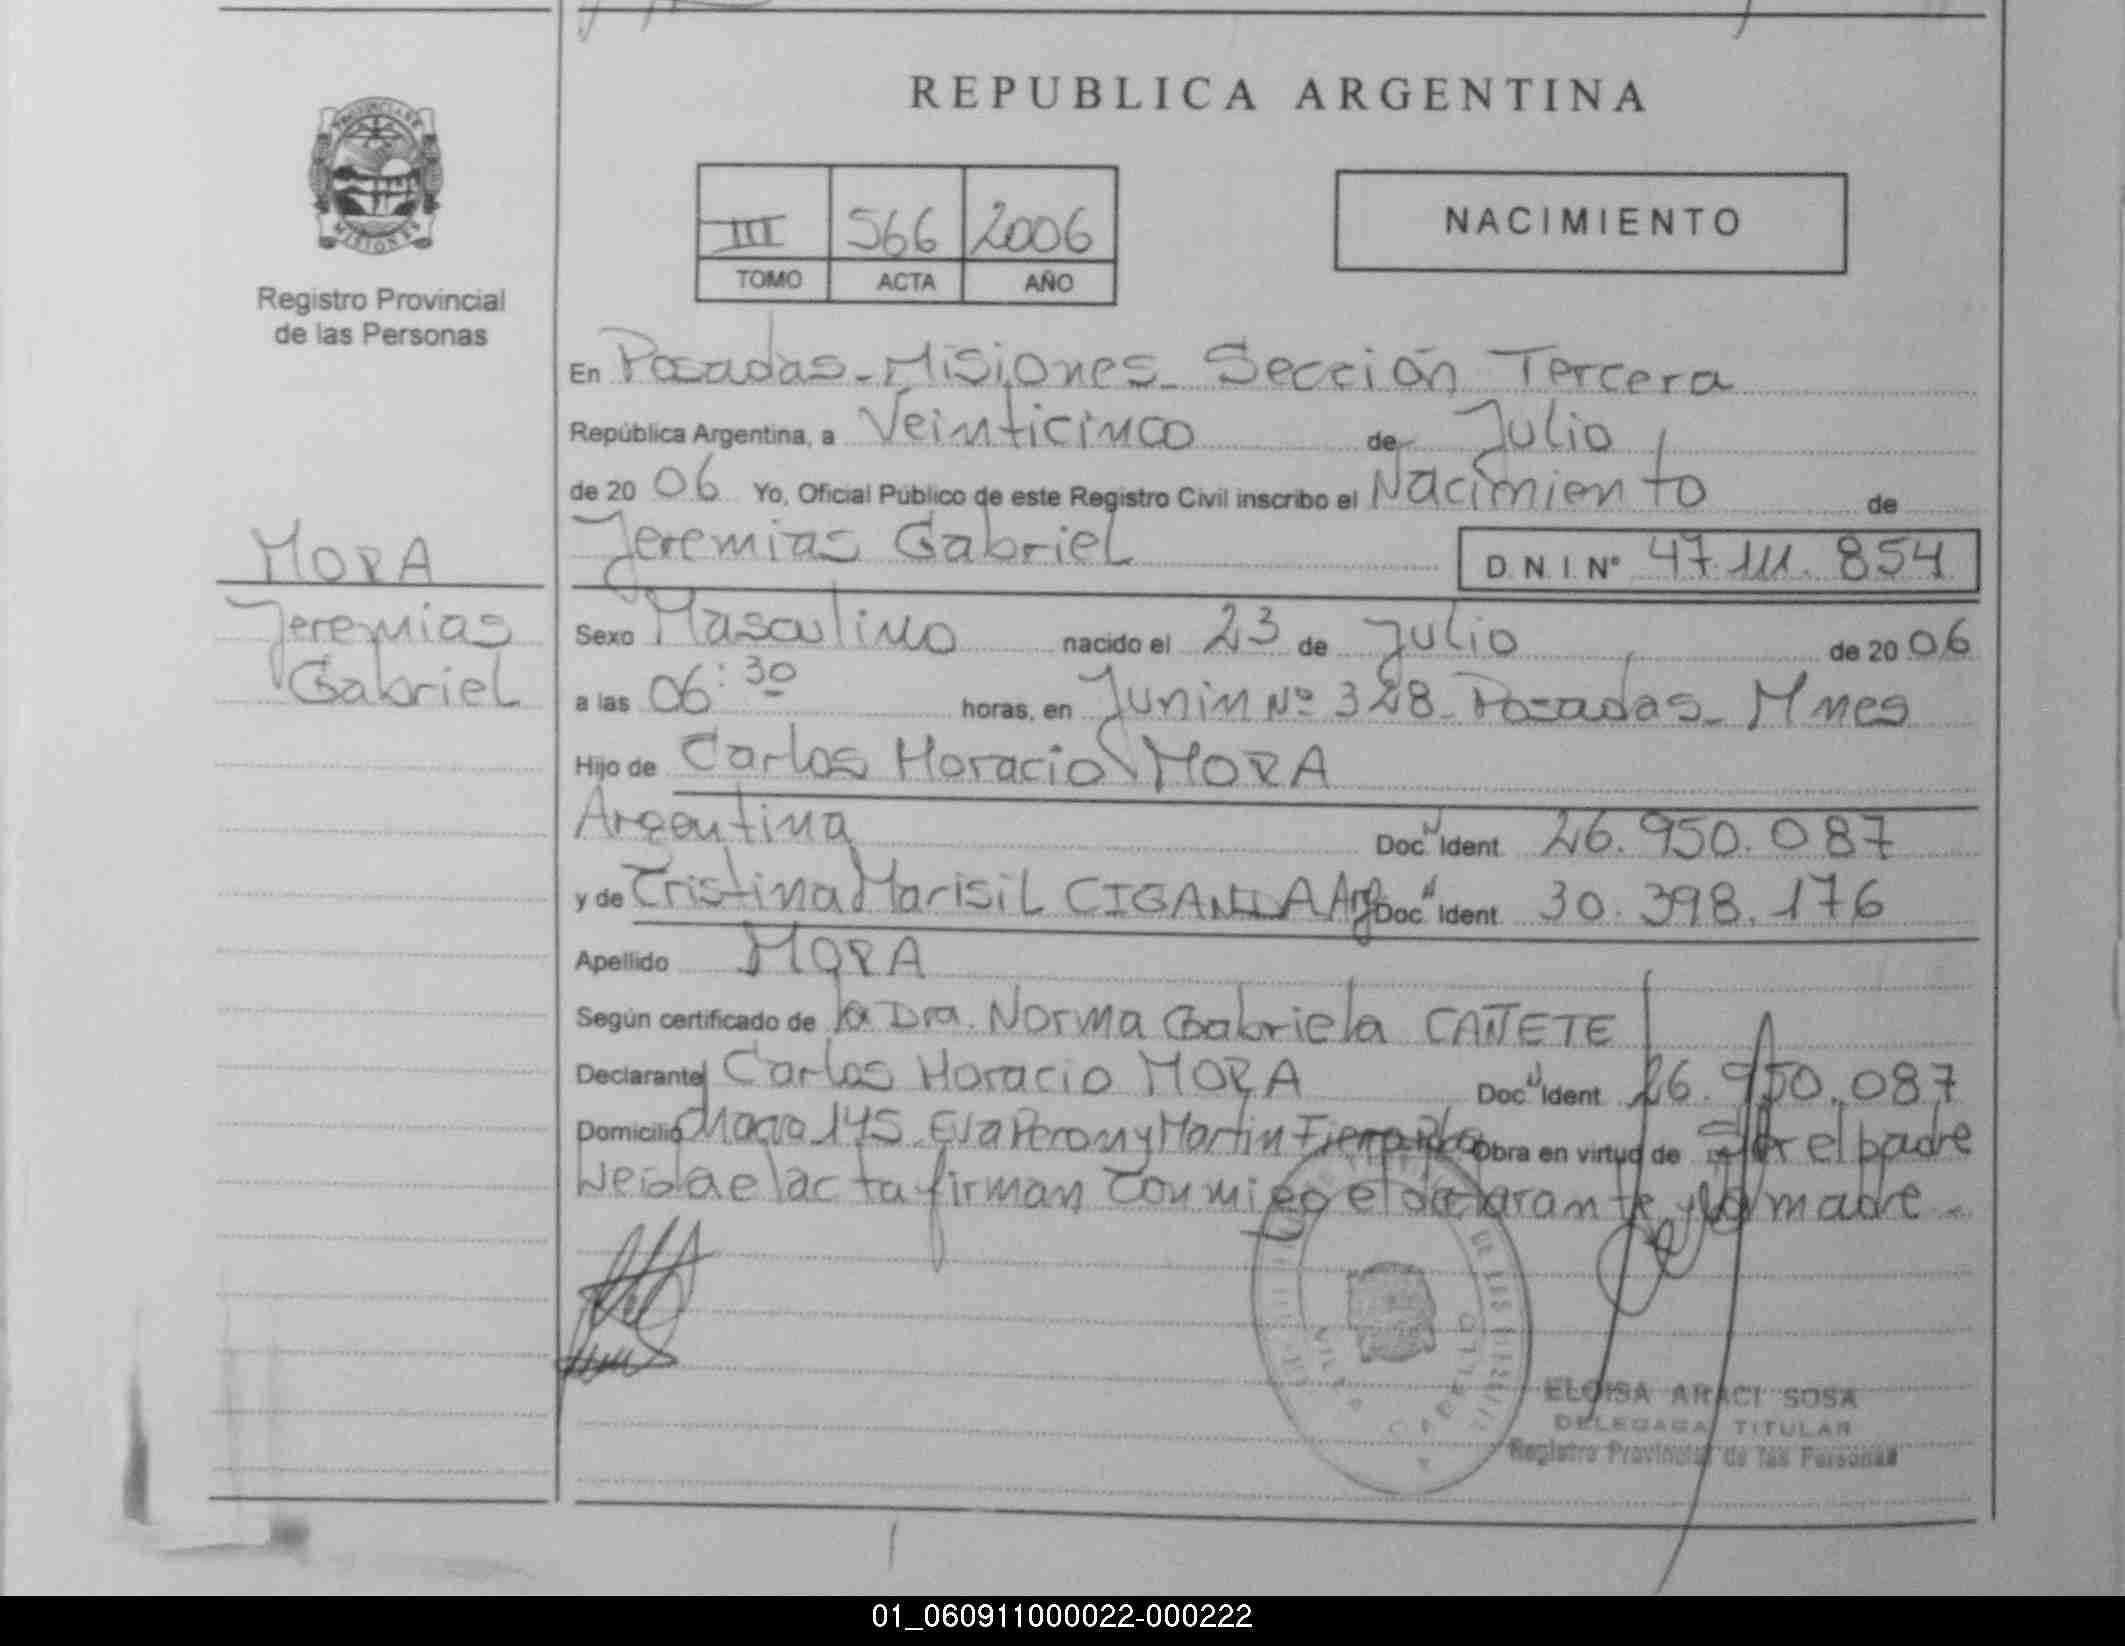 REPUBLICA ARGENTINA
PROVINCIA DE
MISIONES
Registro Provincial
de las Personas
III 566 2006
TOMO ACTA AÑO
NACIMIENTO
En Posadas - Misiones - Sección Tercera
República Argentina, a Veinticinco de Julio
de 20 06 Yo, Oficial Público de este Registro Civil inscribo el Nacimiento de
MORA
Jeremias Gabriel
Jeremias Gabriel D.N.I. Nº 47.111.854
Sexo Masculino nacido el 23 de Julio de 20 06
a las 06:30 horas, en Junin Nº 328 - Posadas - Mnes
Hijo de Carlos Horacio MORA
Argentina Doc Ident 26.950.087
y de Cristina Marisil Arg Doc Ident 30.398.176
Apellido MORA
Según certificado de la Dra. Norma Gabriela CAÑETE
Declarante Carlos Horacio MORA Doc Ident 26.950.087
Domicilio 145 Eva Peron y Martin Obra en virtud de el padre
Leida el acta firman conmigo el declarante y la madre -
VILLA CABELLO
ELOISA ARACI SOSA
DELEGADA TITULAR
Registro Provincial de las Personas
01_060911000022-000222